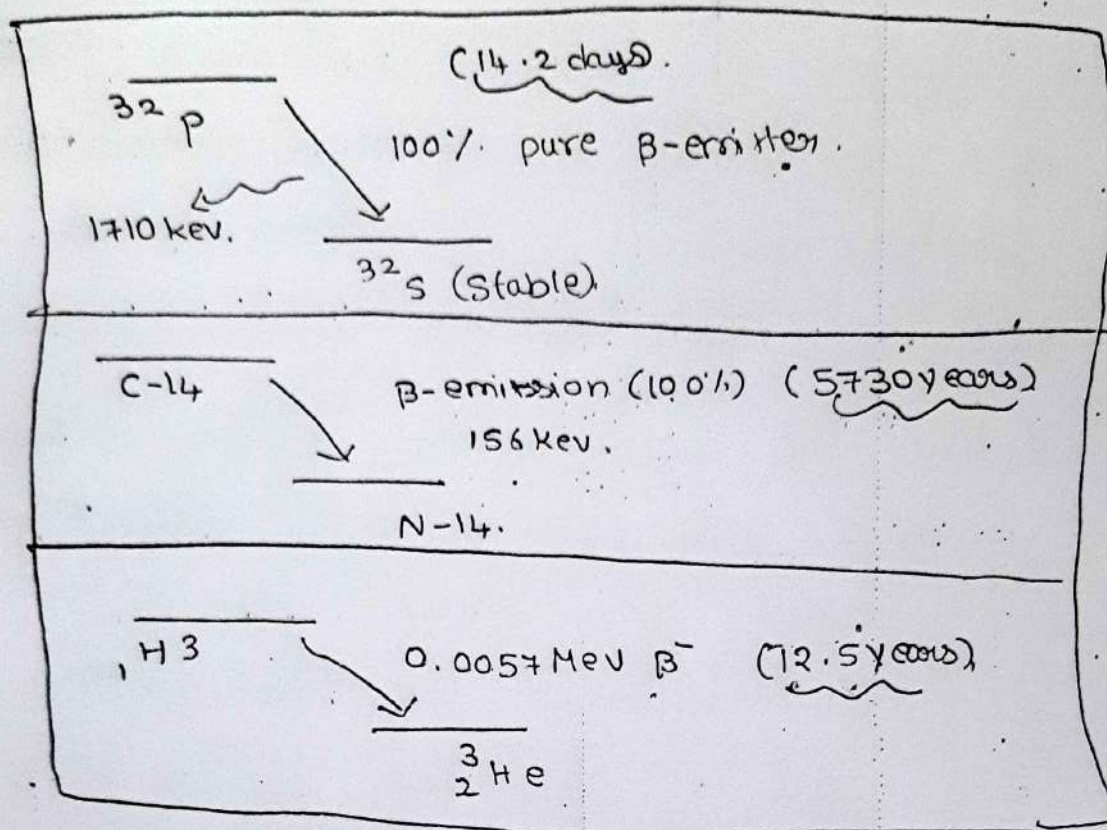 (14.2 days.
32 P
100% pure β-emitter.
1710 kev.
32 S (Stable)
C-14
β-emission (100%) (5730 years)
156 kev.
N-14.
1H3
0.0057 Mev β- (12.5 years)
3 2 He